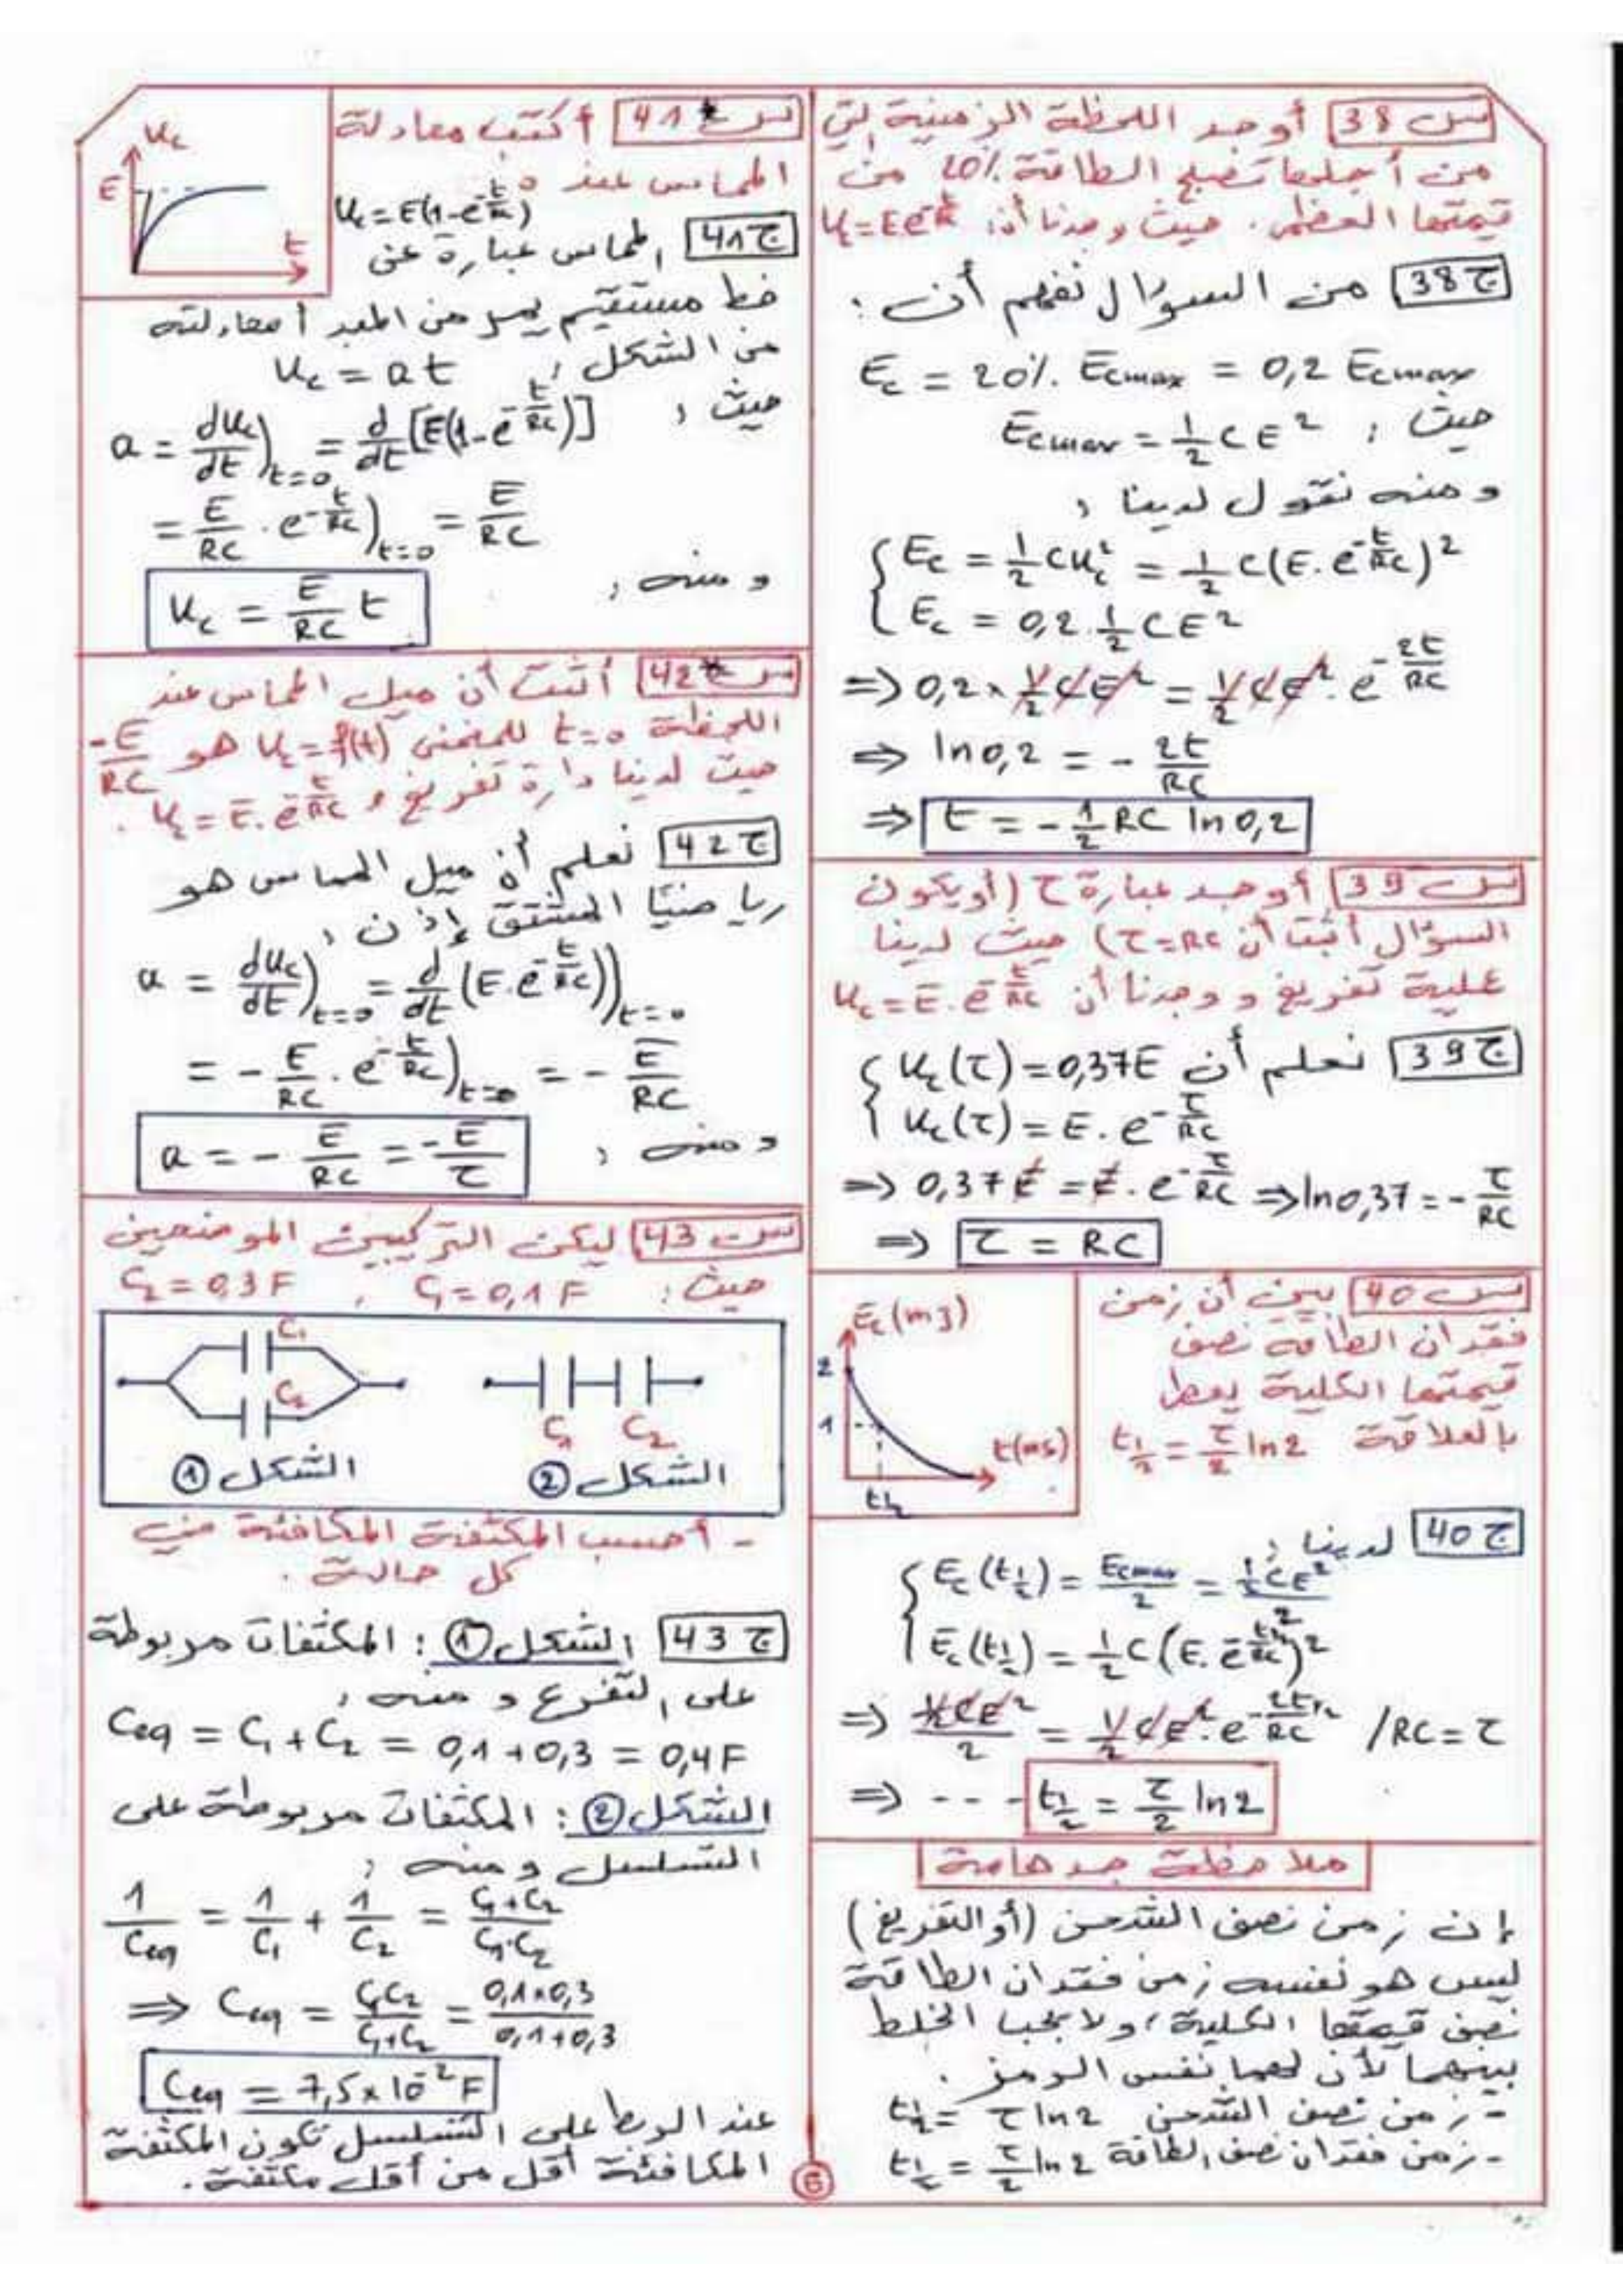 س 38 أوجد اللحظة الزمنية التي
من أجلها تصبح الطاقة 20% من
قيمتها العظمى. حيث وجدنا أن: Uc=Ee^(-t/RC)
ج 38 من السؤال نفهم أن :
Ec = 20%. Ecmax = 0,2 Ecmax
حيث : Ecmax = 1/2 C E²
ومنه نقول لدينا :
Ec = 1/2 C Uc² = 1/2 C(E.e^(-t/RC))²
Ec = 0,2 . 1/2 C E²
=> 0,2 x 1/2 C E² = 1/2 C E² . e^(-2t/RC)
=> ln0,2 = - 2t/RC
=> t = - 1/2 RC ln0,2
س 39 أوجد عبارة τ (أو يكون
السؤال أثبت أن τ=RC) حيث لدينا
عملية تفريغ و وجدنا أن Uc = E.e^(-t/RC)
ج 39 نعلم أن Uc(τ) = 0,37E
Uc(τ) = E . e^(-τ/RC)
=> 0,37E = E . e^(-τ/RC) => ln0,37 = - τ/RC
=> τ = RC
س 40 بين أن زمن
فقدان الطاقة نصف
قيمتها الكلية يعطى
بالعلاقة t1/2 = τ/2 ln2
Ec(mJ)
2
1
t(ms)
t1/2
ج 40 لدينا :
Ec(t1/2) = Ecmax/2 = (1/2 C E²)/2
Ec(t1/2) = 1/2 C(E.e^(-t1/2/RC))²
=> (1/2 C E²)/2 = 1/2 C E² . e^(-2t1/2/RC) /RC = τ
=> --- t1/2 = τ/2 ln2
ملاحظة جد هامة
إن زمن نصف الشحن (أو التفريغ)
ليس هو نفسه زمن فقدان الطاقة
نصف قيمتها الكلية، ولا يجب الخلط
بينهما لأن لهما نفس الرمز.
- زمن نصف الشحن t1/2 = τ ln2
- زمن فقدان نصف الطاقة t1/2 = τ/2 ln2
س 41 أكتب معادلة
المماس عند 0
Uc = E(1-e^(-t/RC))
Uc
E
t
ج 41 المماس عبارة عن
خط مستقيم يمر من المبدأ معادلته
من الشكل : Uc = a t
حيث :
a = dUc/dt)t=0 = d/dt [E(1-e^(-t/RC))]
= E/RC . e^(-t/RC))t=0 = E/RC
ومنه : Uc = E/RC t
س 42 أثبت أن ميل المماس عند
اللحظة t=0 للمنحنى Uc = f(t) هو -E/RC
حيث لدينا دارة تفريغ و Uc = E.e^(-t/RC) .
ج 42 نعلم أن ميل المماس هو
رياضيا المشتق إذن :
a = dUc/dt)t=0 = d/dt (E.e^(-t/RC)))t=0
= - E/RC . e^(-t/RC))t=0 = - E/RC
ومنه : a = - E/RC = -E/τ
س 43 ليكن التركيبين الموضحين
حيث : C1 = 0,1 F , C2 = 0,3 F
C1
C2
C1 C2
الشكل ① الشكل ②
- أحسب المكثفة المكافئة في
كل حالة .
ج 43 الشكل ① : المكثفات مربوطة
على التفرع ومنه :
Ceq = C1 + C2 = 0,1 + 0,3 = 0,4 F
الشكل ② : المكثفات مربوطة على
التسلسل ومنه :
1/Ceq = 1/C1 + 1/C2 = (C1+C2)/(C1.C2)
=> Ceq = C1C2/(C1+C2) = (0,1x0,3)/(0,1+0,3)
Ceq = 7,5x10^-2 F
عند الربط على التسلسل تكون المكثفة
المكافئة أقل من أقل مكثفة .
6